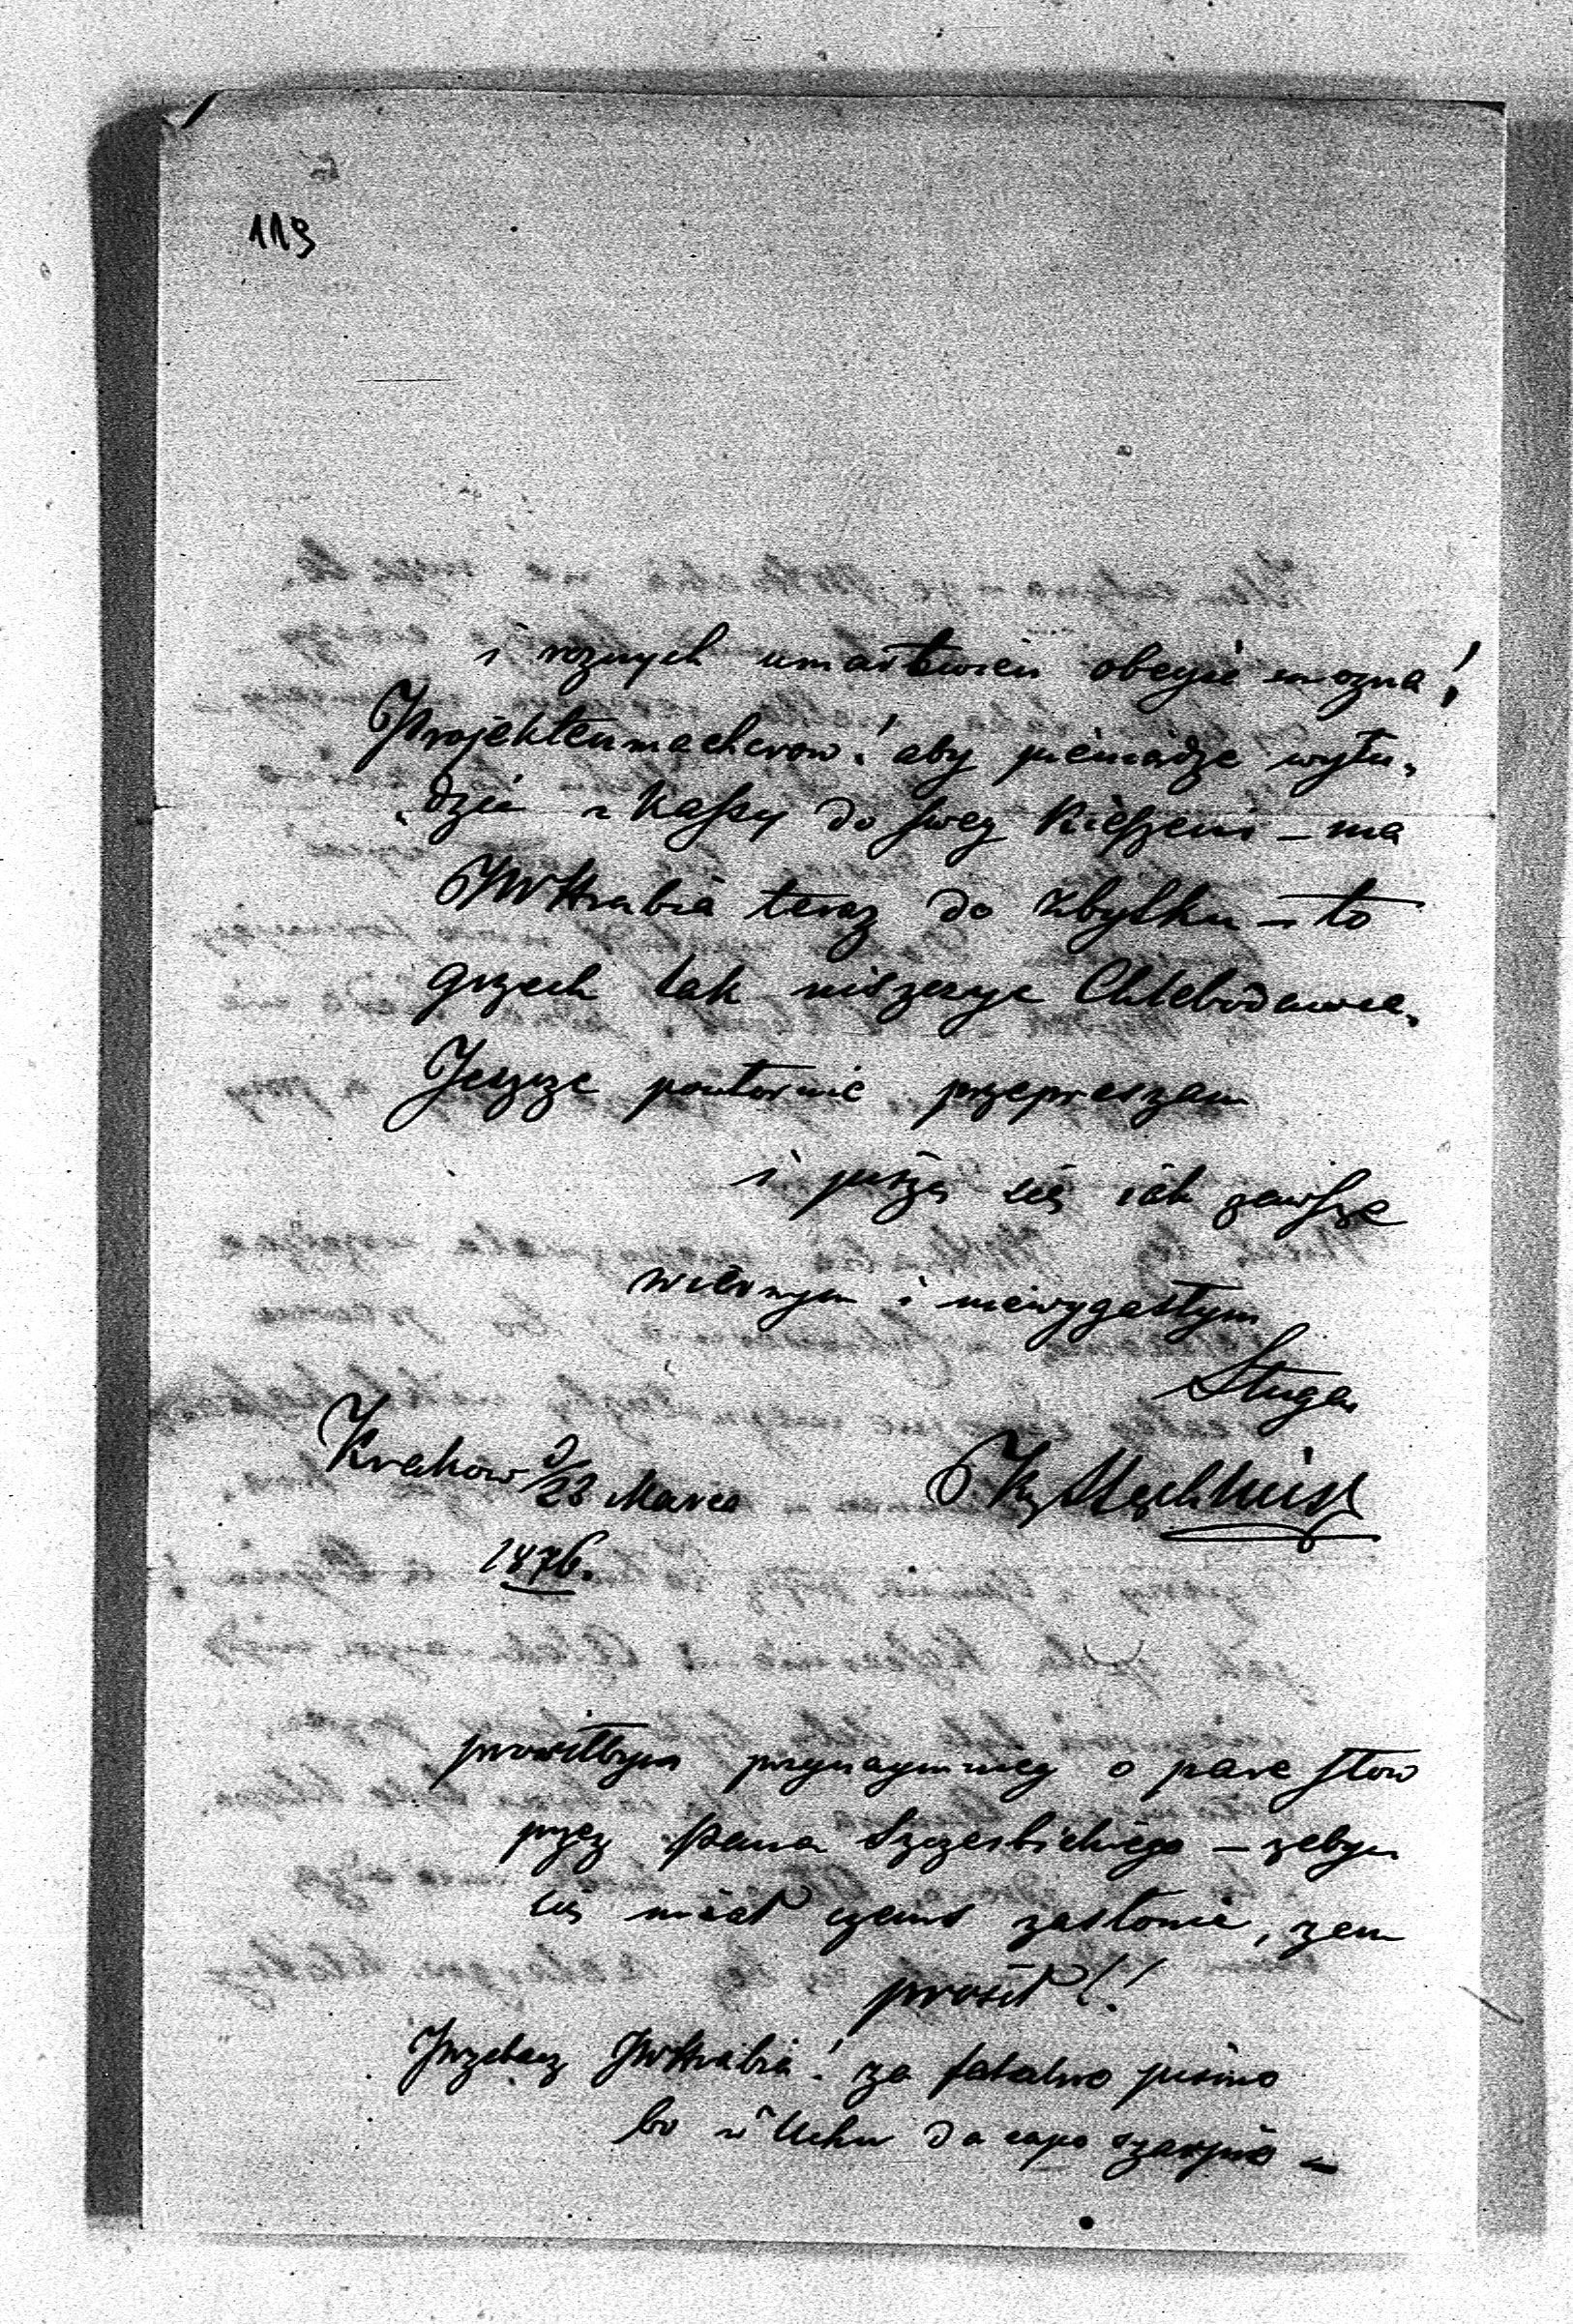 119
i roznych umartwien obeyśc mozna!
Projektenmacherow! aby pieniadze wyłu„
„dzić z Kassy do swey Kieszeni – ma
JWHrabia teraz do zbytku – to
grzech tak niszczyć Chlebodawce.
Jeszcze powtornie przepraszam
i piszę się iak zawsze
wiernym i niewygasłym
Sługą
Krakow d/23 Marca
1876.
prosiłbym przynaymniey o pare słow
przez Pana Szczerbickiego – zebym
się miał czemś zasłonić, zem
prosił!!
Przebacz JWHrabia! za fatalne pismo
bo w Uchu da capo szarpie –